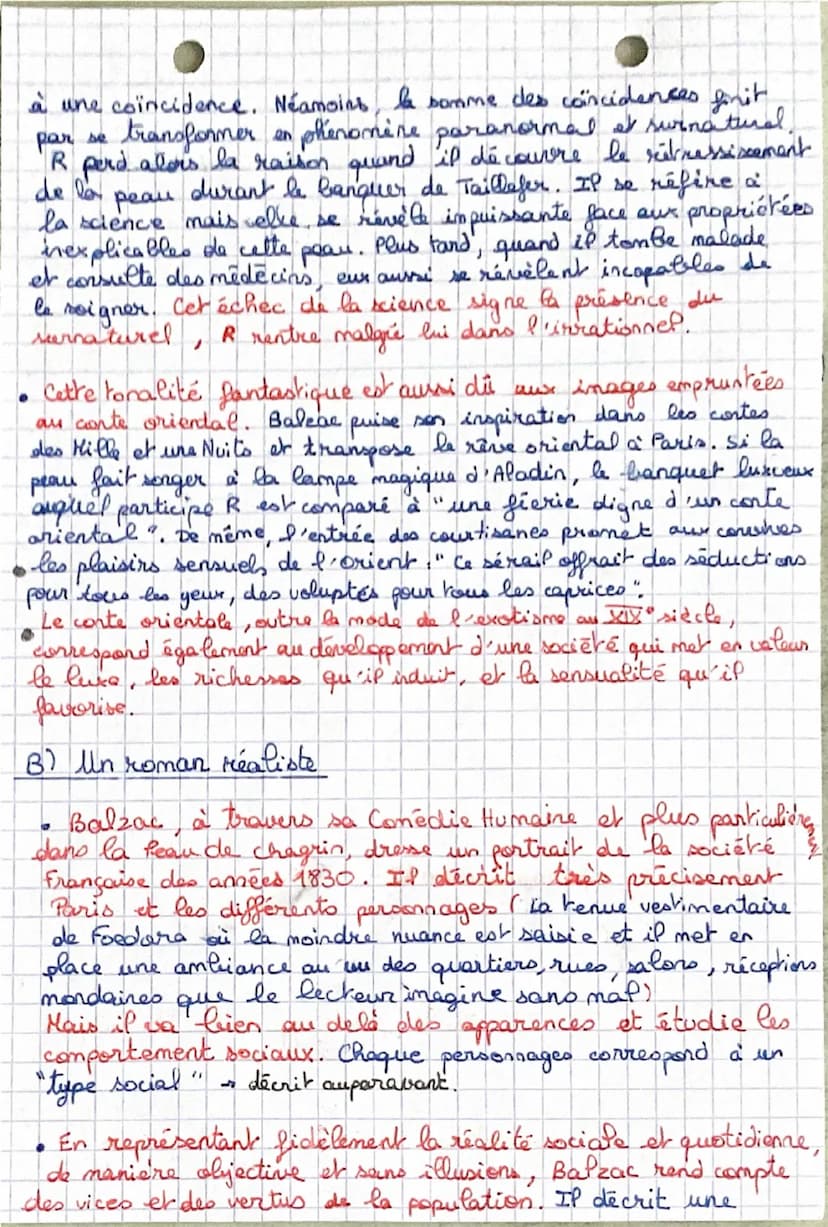 à une coïncidence. Néamoins, la somme des coïncidences finit
par se transformer en phénomène paranormal et surnaturel.
R perd alors la raison quand il découvre le rétressissement
de la peau durant le banquer de Taillefer. Il se réfère à
la science mais elle se révèle impuissante face aux propriétées
inexplicables de cette peau. Plus tard, quand il tombe malade
et consulte des médecins, eux aussi se révèlent incapables de
le soigner. Cet échec de la science signe la présence du
surnaturel, R rentre malgré lui dans l'irrationnel.
• Cette tonalité fantastique est aussi dû aux images empruntées
au conte oriental. Balzac puise son inspiration dans les contes
des Mille et une Nuits et transpose le rêve oriental à Paris. Si la
peau fait songer à la lampe magique d'Aladin, le banquet luxueux
auquel participe R est comparé à "une féerie digne d'un conte
oriental". De même, l'entrée des courtisanes promet aux convives
les plaisirs sensuels de l'orient : "Ce sérail offrait des séductions
pour tous les yeux, des voluptés pour tous les caprices".
• Le conte orientale, outre la mode de l'exotisme au XIX° siècle,
correspond également au développement d'une société qui met en valeur
le luxe, les richesses qu'il induit, et la sensualité qu'il
favorise.
B) Un roman réaliste
• Balzac, à travers sa Comédie Humaine et plus particulièrement
dans la Peau de chagrin, dresse un portrait de la société
Française des années 1830. Il décrit très précisement
Paris et les différents personnages (La tenue vestimentaire
de Foedora où la moindre nuance est saisie et il met en
place une ambiance au vu des quartiers, rues, salons, réceptions
mondaines que le lecteur imagine sans mal)
Mais il va bien au delà des apparences et étudie les
comportement sociaux. Chaque personnages correspond à un
"type social" → décrit auparavant.
• En représentant fidèlement la réalité sociale et quotidienne,
de manière objective et sans illusions, Balzac rend compte
des vices et des vertus de la population. Il décrit une